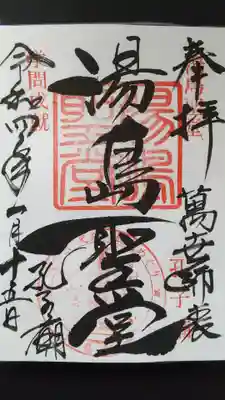 奉拝
萬世師表
湯島聖堂
孔子廟
令和四年一月十五日